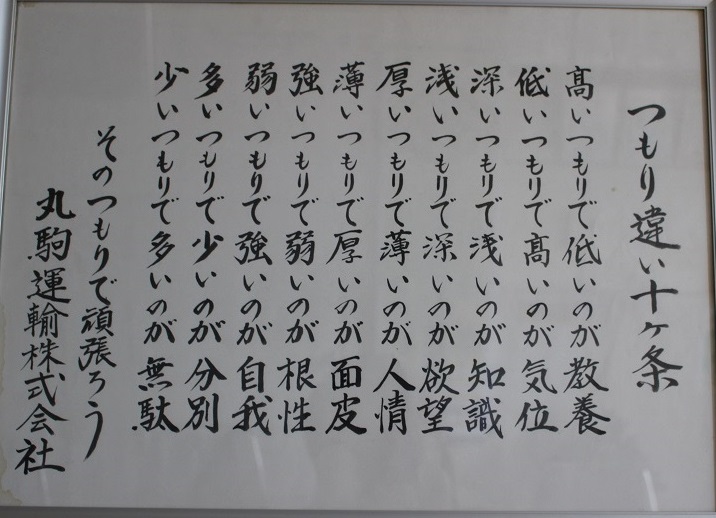 つもり違い十ヶ条
高いつもりで低いのが教養
低いつもりで高いのが気位
深いつもりで浅いのが知識
浅いつもりで深いのが欲望
厚いつもりで薄いのが人情
薄いつもりで厚いのが面皮
強いつもりで弱いのが根性
弱いつもりで強いのが自我
多いつもりで少いのが分別
少いつもりで多いのが無駄
そのつもりで頑張ろう
丸駒運輸株式会社